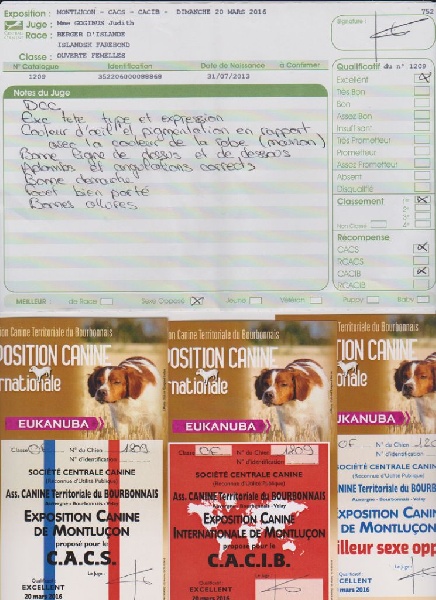 Exposition : MONTLUÇON - CACS - CACIB - DIMANCHE 20 MARS 2016
752
Juge : Mme GOGINUS Judith
Race : BERGER D'ISLANDE
ISLANDSK FAREHOND
Classe : OUVERTE FEMELLES
Signature :
N° Catalogue Identification Date de Naissance à Confirmer
1209 352206000088868 31/07/2013
Qualificatif du n° 1209
Excellent
Très Bon
Bon
Assez Bon
Insuffisant
Très Prometteur
Prometteur
Assez Prometteur
Absent
Disqualifié
Classement
Non Classé
Récompense
CACS
RCACS
CACIB
RCACIB
Notes du Juge
DCC
Exc tete type et expression
Couleur d'oeil et pigmentation en rapport
avec la couleur de la robe (marron)
Bonne ligne de dessus et de dessous
Aplombs et angulations corrects
Bonne
Fouet bien porté
Bonnes allures
MEILLEUR : de Race Sexe Opposé Jeune Veteran Puppy Baby
ion Canine Territoriale du Bourbonnais
POSITION CANINE
rnationale
EUKANUBA
Classe N° du Chien 1209
N° d'identification
SOCIÉTÉ CENTRALE CANINE
(Reconnue d'Utilité Publique)
Ass. CANINE Territoriale du BOURBONNAIS
Auvergne - Bourbonnais - Velay
EXPOSITION CANINE
DE MONTLUÇON
proposé pour le
C.A.C.S.
Qualificatif Le Juge :
EXCELLENT
20 mars 2016
ion Canine Territoriale du Bourbonnais
POSITION CANINE
rnationale
EUKANUBA
Classe OF N° du Chien 1209
N° d'identification
SOCIÉTÉ CENTRALE CANINE
(Reconnue d'Utilité Publique)
Ass. CANINE Territoriale du BOURBONNAIS
Auvergne - Bourbonnais - Velay
EXPOSITION CANINE
INTERNATIONALE DE MONTLUÇON
proposé pour le
C.A.C.I.B.
Qualificatif Le Juge :
EXCELLENT
20 mars 2016
Canine Territoriale du Bourbonnais
ITION CANINE
ationale
EUKANUBA
OF N° du Chien
N° d'identification
SOCIÉTÉ CENTRALE
(Reconnue d'Utilité
CANINE Territoriale du BOU
Auvergne - Bourbonnais
EXPOSITION CA
DE MONTLUÇ
illeur sexe opp
Le Ju
CELLENT
mars 2016